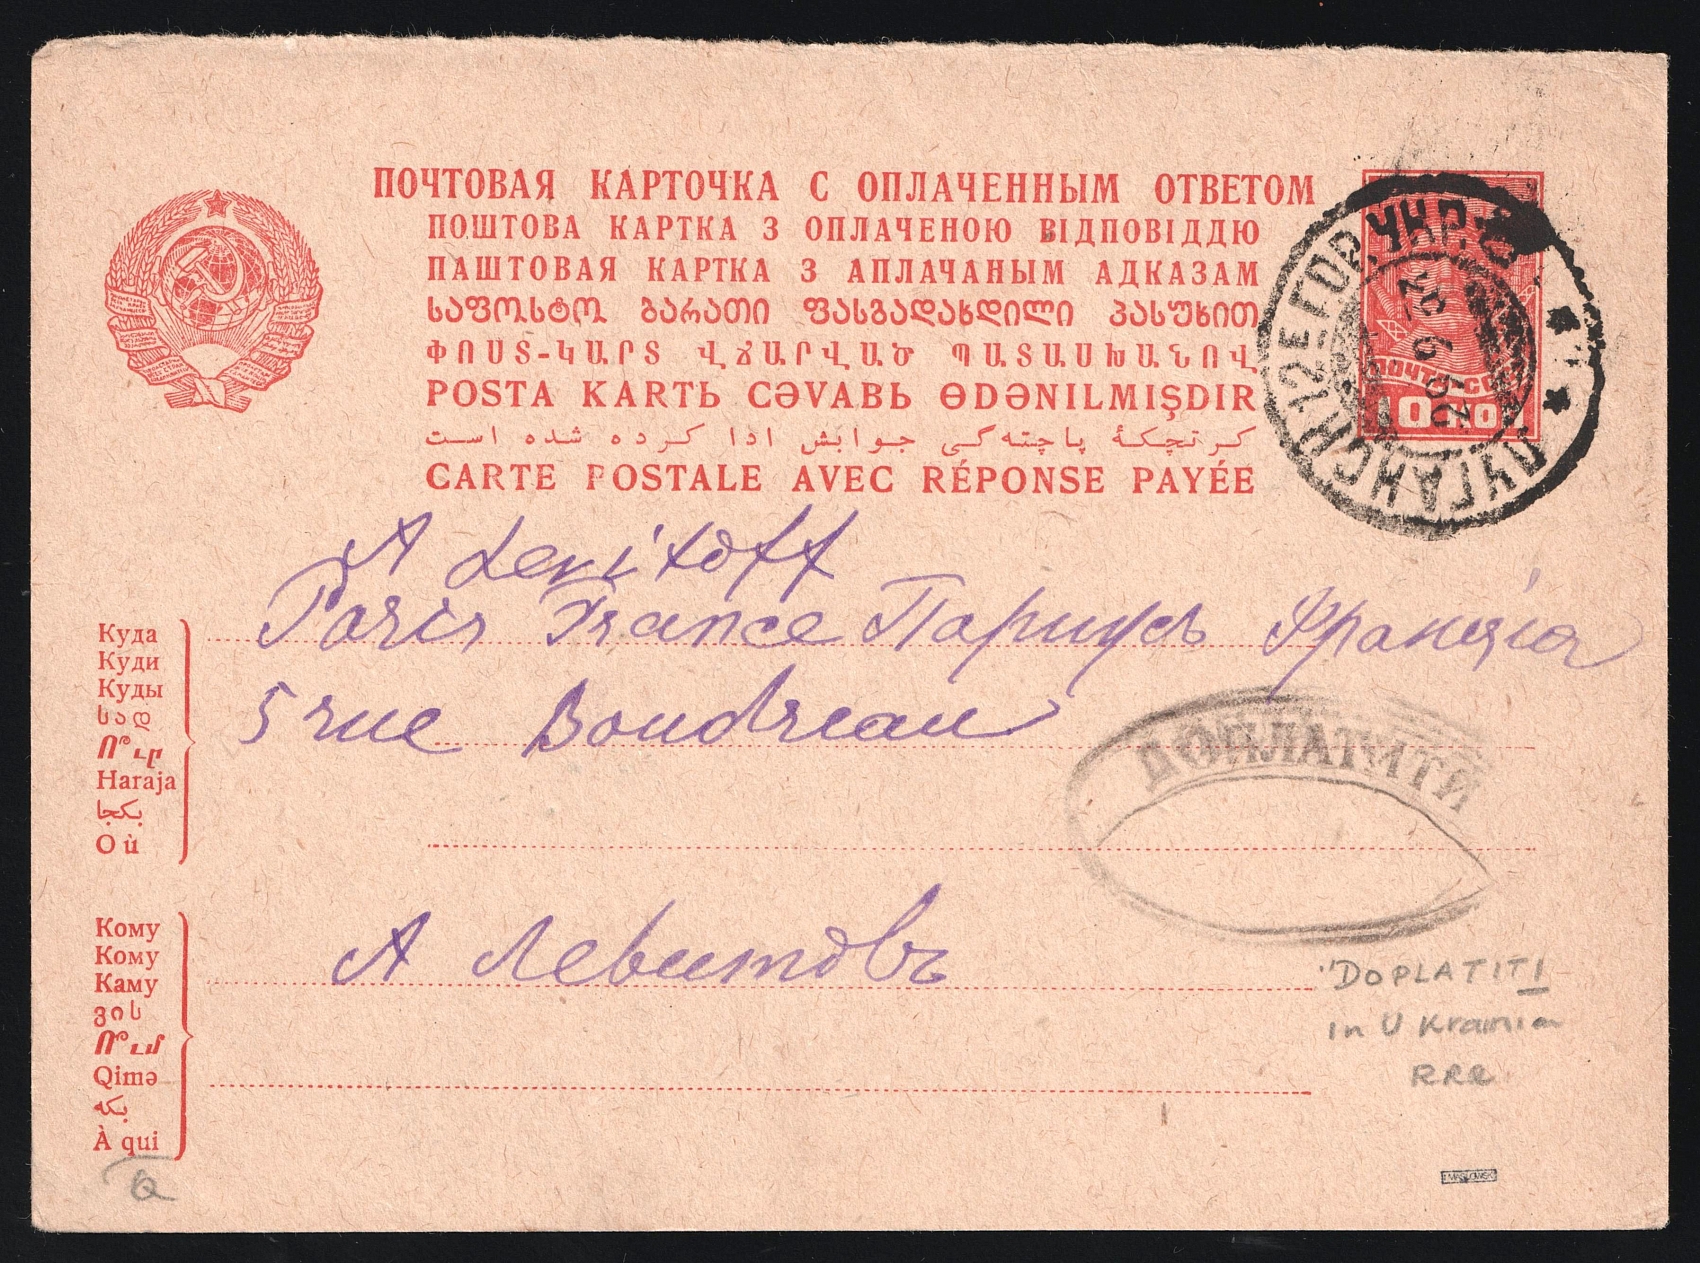 ПОЧТОВАЯ КАРТОЧКА С ОПЛАЧЕННЫМ ОТВЕТОМ
ПОШТОВА КАРТКА З ОПЛАЧЕНОЮ ВІДПОВІДДЮ
ПАШТОВАЯ КАРТКА З АПЛАЧАНЫМ АДКАЗАМ
ᲡᲐᲤᲝᲡᲢᲝ ᲑᲐᲠᲐᲗᲘ ᲤᲐᲡᲒᲐᲓᲐᲮᲓᲘᲚᲘ ᲞᲐᲡᲣᲮᲘᲗ
ՓՈՍՏ-ԿԱՐՏ ՎՃԱՐՎԱԾ ՊԱՏԱՍԽԱՆՈՎ
POSTA KARTЬ CƏVABЬ ӨDƏNILMIŞDIR
كرتچكهٔ پاچته‌گی جوابش ادا كرده شده است
CARTE POSTALE AVEC RÉPONSE PAYÉE
ЛУГАНСК 2Е ГОР. УКР.
ПОЧТА СССР
10 10
A Levitoff
Paris France Парижъ Франція
5 rue Boudreau
Куда
Куди
Куды
სად
Ո՞ւր
Haraja
بكجا
Où
ДОПЛАТИТИ
А Левитовъ
Кому
Кому
Каму
ვის
Ո՞ւմ
Qimə
بكه
À qui
"DOPLATITI
in UKrainia
RRR